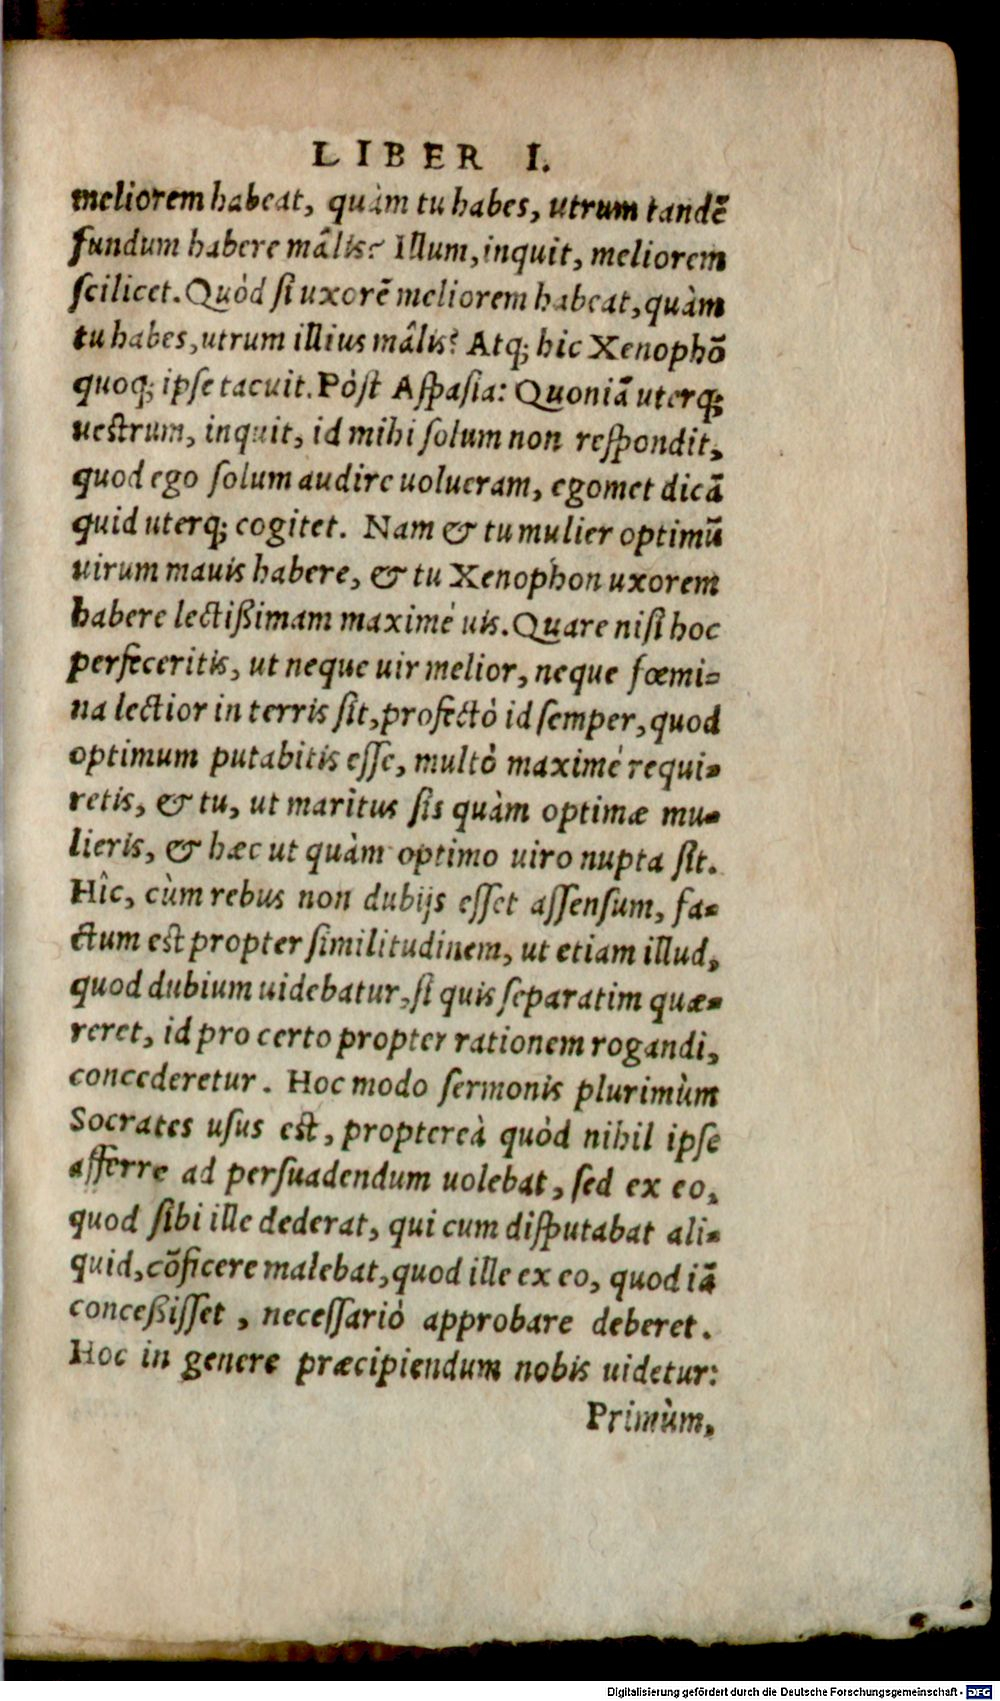 LIBER I.
meliorem habeat, quàm tu habes, utrum tandẽ
fundum habere mâlis? Illum, inquit, meliorem
scilicet. Quòd si uxorẽ meliorem habeat, quàm
tu habes, utrum illius mâlis? Atq; hic Xenophõ
quoq; ipse tacuit. Pòst Aspasia: Quoniã uterq;
uestrum, inquit, id mihi solum non respondit,
quod ego solum audire uolueram, egomet dicã
quid uterq; cogitet. Nam & tu mulier optimũ
uirum mauis habere, & tu Xenophon uxorem
habere lectißimam maximè uis. Quare nisi hoc
perfeceritis, ut neque uir melior, neque fœmi-
na lectior in terris sit, profectò id semper, quod
optimum putabitis esse, multò maximè requi-
retis, & tu, ut maritus sis quàm optimæ mu-
lieris, & hæc ut quàm optimo uiro nupta sit.
Hîc, cùm rebus non dubijs esset assensum, fa-
ctum est propter similitudinem, ut etiam illud,
quod dubium uidebatur, si quis separatim quæ-
reret, id pro certo propter rationem rogandi,
concederetur. Hoc modo sermonis plurimùm
Socrates usus est, proptereà quòd nihil ipse
afferre ad persuadendum uolebat, sed ex eo,
quod sibi ille dederat, qui cum disputabat ali-
quid, cõficere malebat, quod ille ex eo, quod iã
conceßisset, necessariò approbare deberet.
Hoc in genere præcipiendum nobis uidetur:
Primùm,
Digitalisierung gefördert durch die Deutsche Forschungsgemeinschaft - DFG